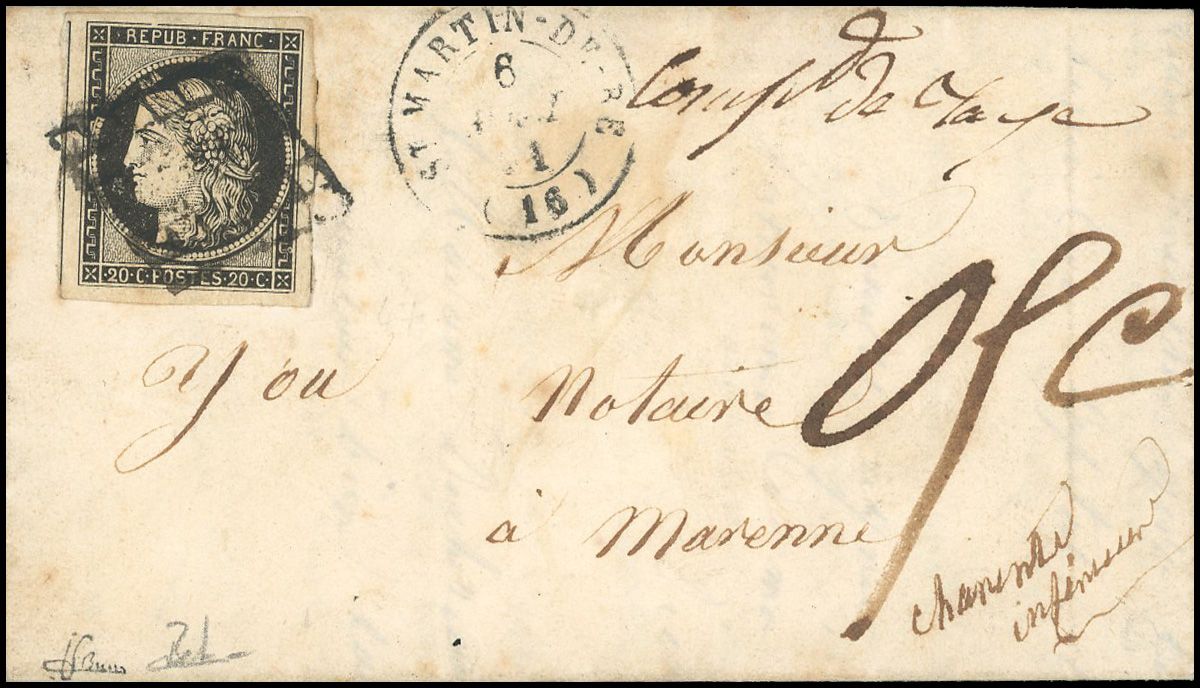 REPUB·FRANC·
20·C·POSTES·20·C·
ST MARTIN-DE-RE
6
(16)
Compt de taxe
Monsieur
You
Notaire
à Marenne
charente
inférieur